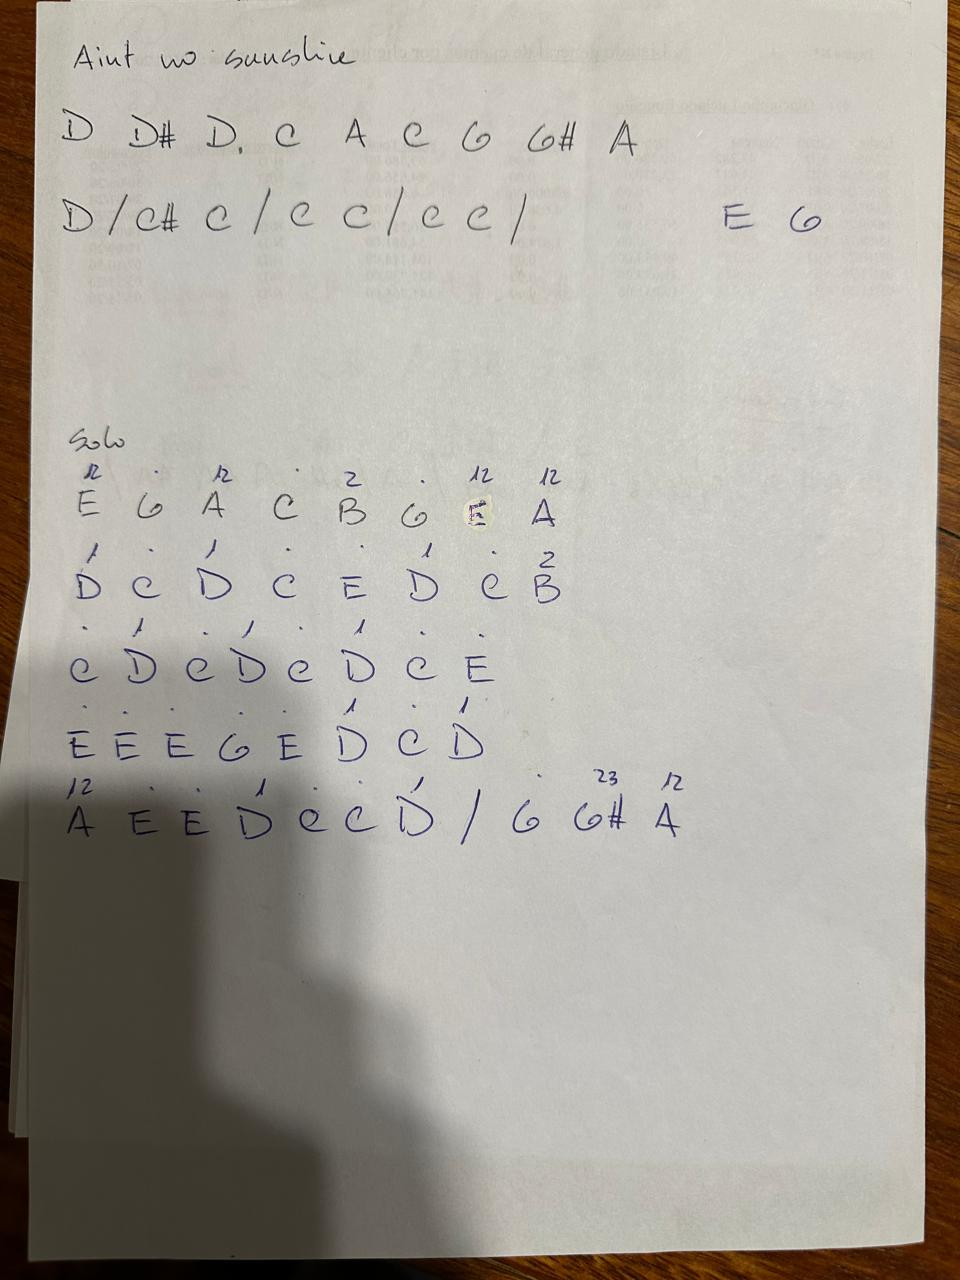 Aint no sunshine
D D# D. C A C G G# A
D / C# C / C C / C C / E G
Solo
12 . 12 . 2 . 12 12
E G A C B G E A
1 . 1 . . 1 . 2
D C D C E D C B
. 1 . 1 . 1 . .
C D C D C D C E
. . . . . 1 . 1
E E E G E D C D
12 . . 1 . . 1 . 23 12
A E E D C C D / G G# A